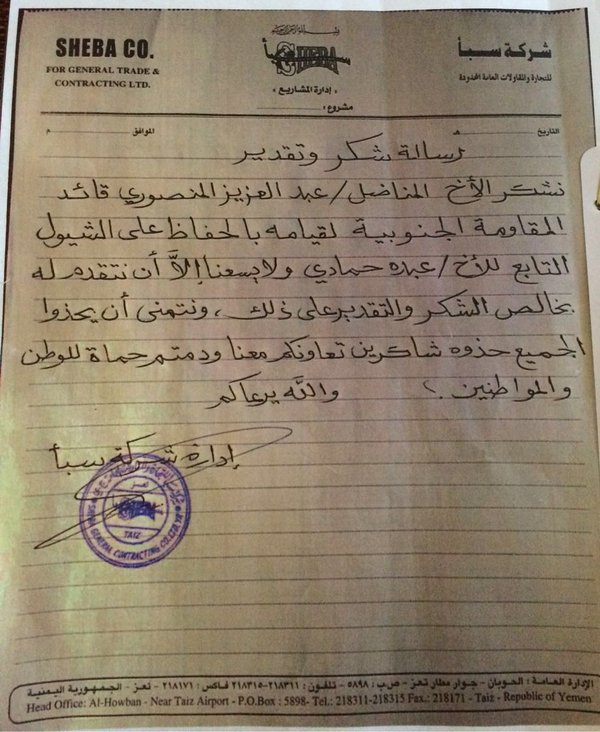 SHEBA CO.
FOR GENERAL TRADE &
CONTRACTING LTD.
SHEBA
شركة سبأ
للتجارة والمقاولات العامة المحدودة
« إدارة المشاريع »
مشروع :
التاريخ م
الموافق م
رسالة شكر وتقدير
نشكر الأخ المناضل / عبد العزيز المنصوري قائد
المقاومة الجنوبية لقيامه بالحفاظ على الشيول
التابع للأخ / عبده حمادي ولا يسعنا إلاَّ أن نتقدم له
بخالص الشكر والتقدير على ذلك ، ونتمنى أن يحذوا
الجميع حذوه شاكرين تعاونكم معنا ودمتم حماة للوطن
والمواطنين . والله يرعاكم
إدارة شركة سبأ
تعز
TAIZ
GENERAL CONTRACTING CO.LTD.
الإدارة العامة : الحوبان - جوار مطار تعز - ص.ب : ٥٨٩٨ - تلفون : ٢١٨٣١١-٢١٨٣١٥ فاكس : ٢١٨١٧١ - تعز - الجمهورية اليمنية
Head Office: Al-Howban - Near Taiz Airport - P.O.Box : 5898- Tel.: 218311-218315 Fax.: 218171 - Taiz - Republic of Yemen